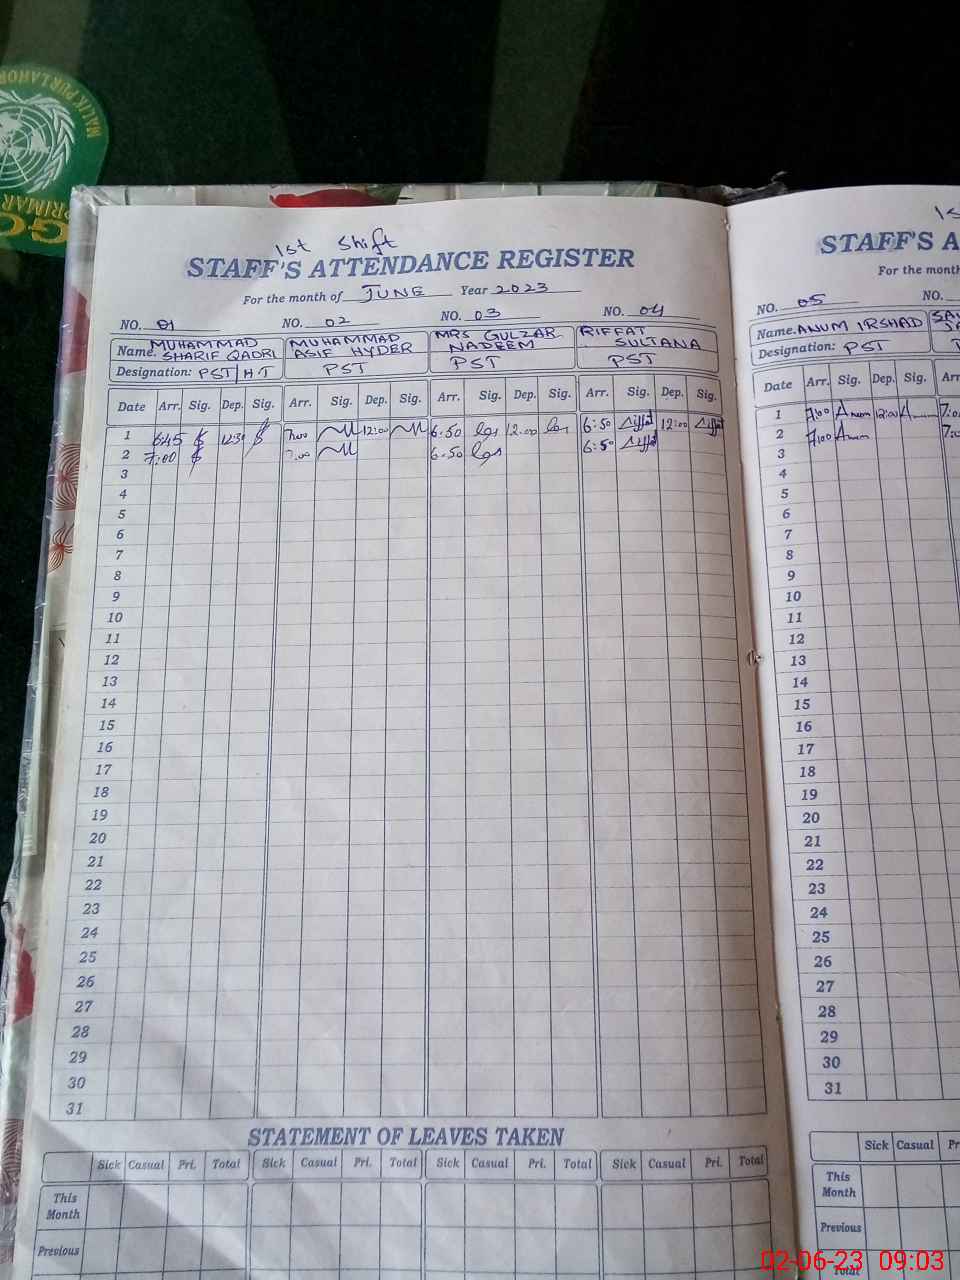 MALIK PUR LAHORE
GO
PRIMAR
1st Shift
STAFF'S ATTENDANCE REGISTER
For the month of JUNE Year 2023
NO. 01 NO. 02 NO. 03 NO. 04
Name. MUHAMMAD SHARIF QADRI MUHAMMAD ASIF HYDER MRS GULZAR NADEEM RIFFAT SULTANA
Designation: PST/HT PST PST PST
Date Arr. Sig. Dep. Sig. Arr. Sig. Dep. Sig. Arr. Sig. Dep. Sig. Arr. Sig. Dep. Sig.
1 6:45 12:30 7:00 12:00 6.50 12.00 6:50 Riffat 12:00 Riffat
2 7:00 7:00 6.50 6:50 Riffat
3
4
5
6
7
8
9
10
11
12
13
14
15
16
17
18
19
20
21
22
23
24
25
26
27
28
29
30
31
STATEMENT OF LEAVES TAKEN
Sick Casual Pri. Total Sick Casual Pri. Total Sick Casual Pri. Total Sick Casual Pri. Total
This Month
Previous
1s
STAFF'S A
For the month
NO. 05 NO.
Name. ANUM IRSHAD
Designation: PST
Date Arr. Sig. Dep. Sig. Arr
1 7:00 Anum 12:00 Anum 7:0
2 7:00 Anum 7:0
3
4
5
6
7
8
9
10
11
12
13
14
15
16
17
18
19
20
21
22
23
24
25
26
27
28
29
30
31
Sick Casual Pr
This Month
Previous
Total
02-06-23 09:03